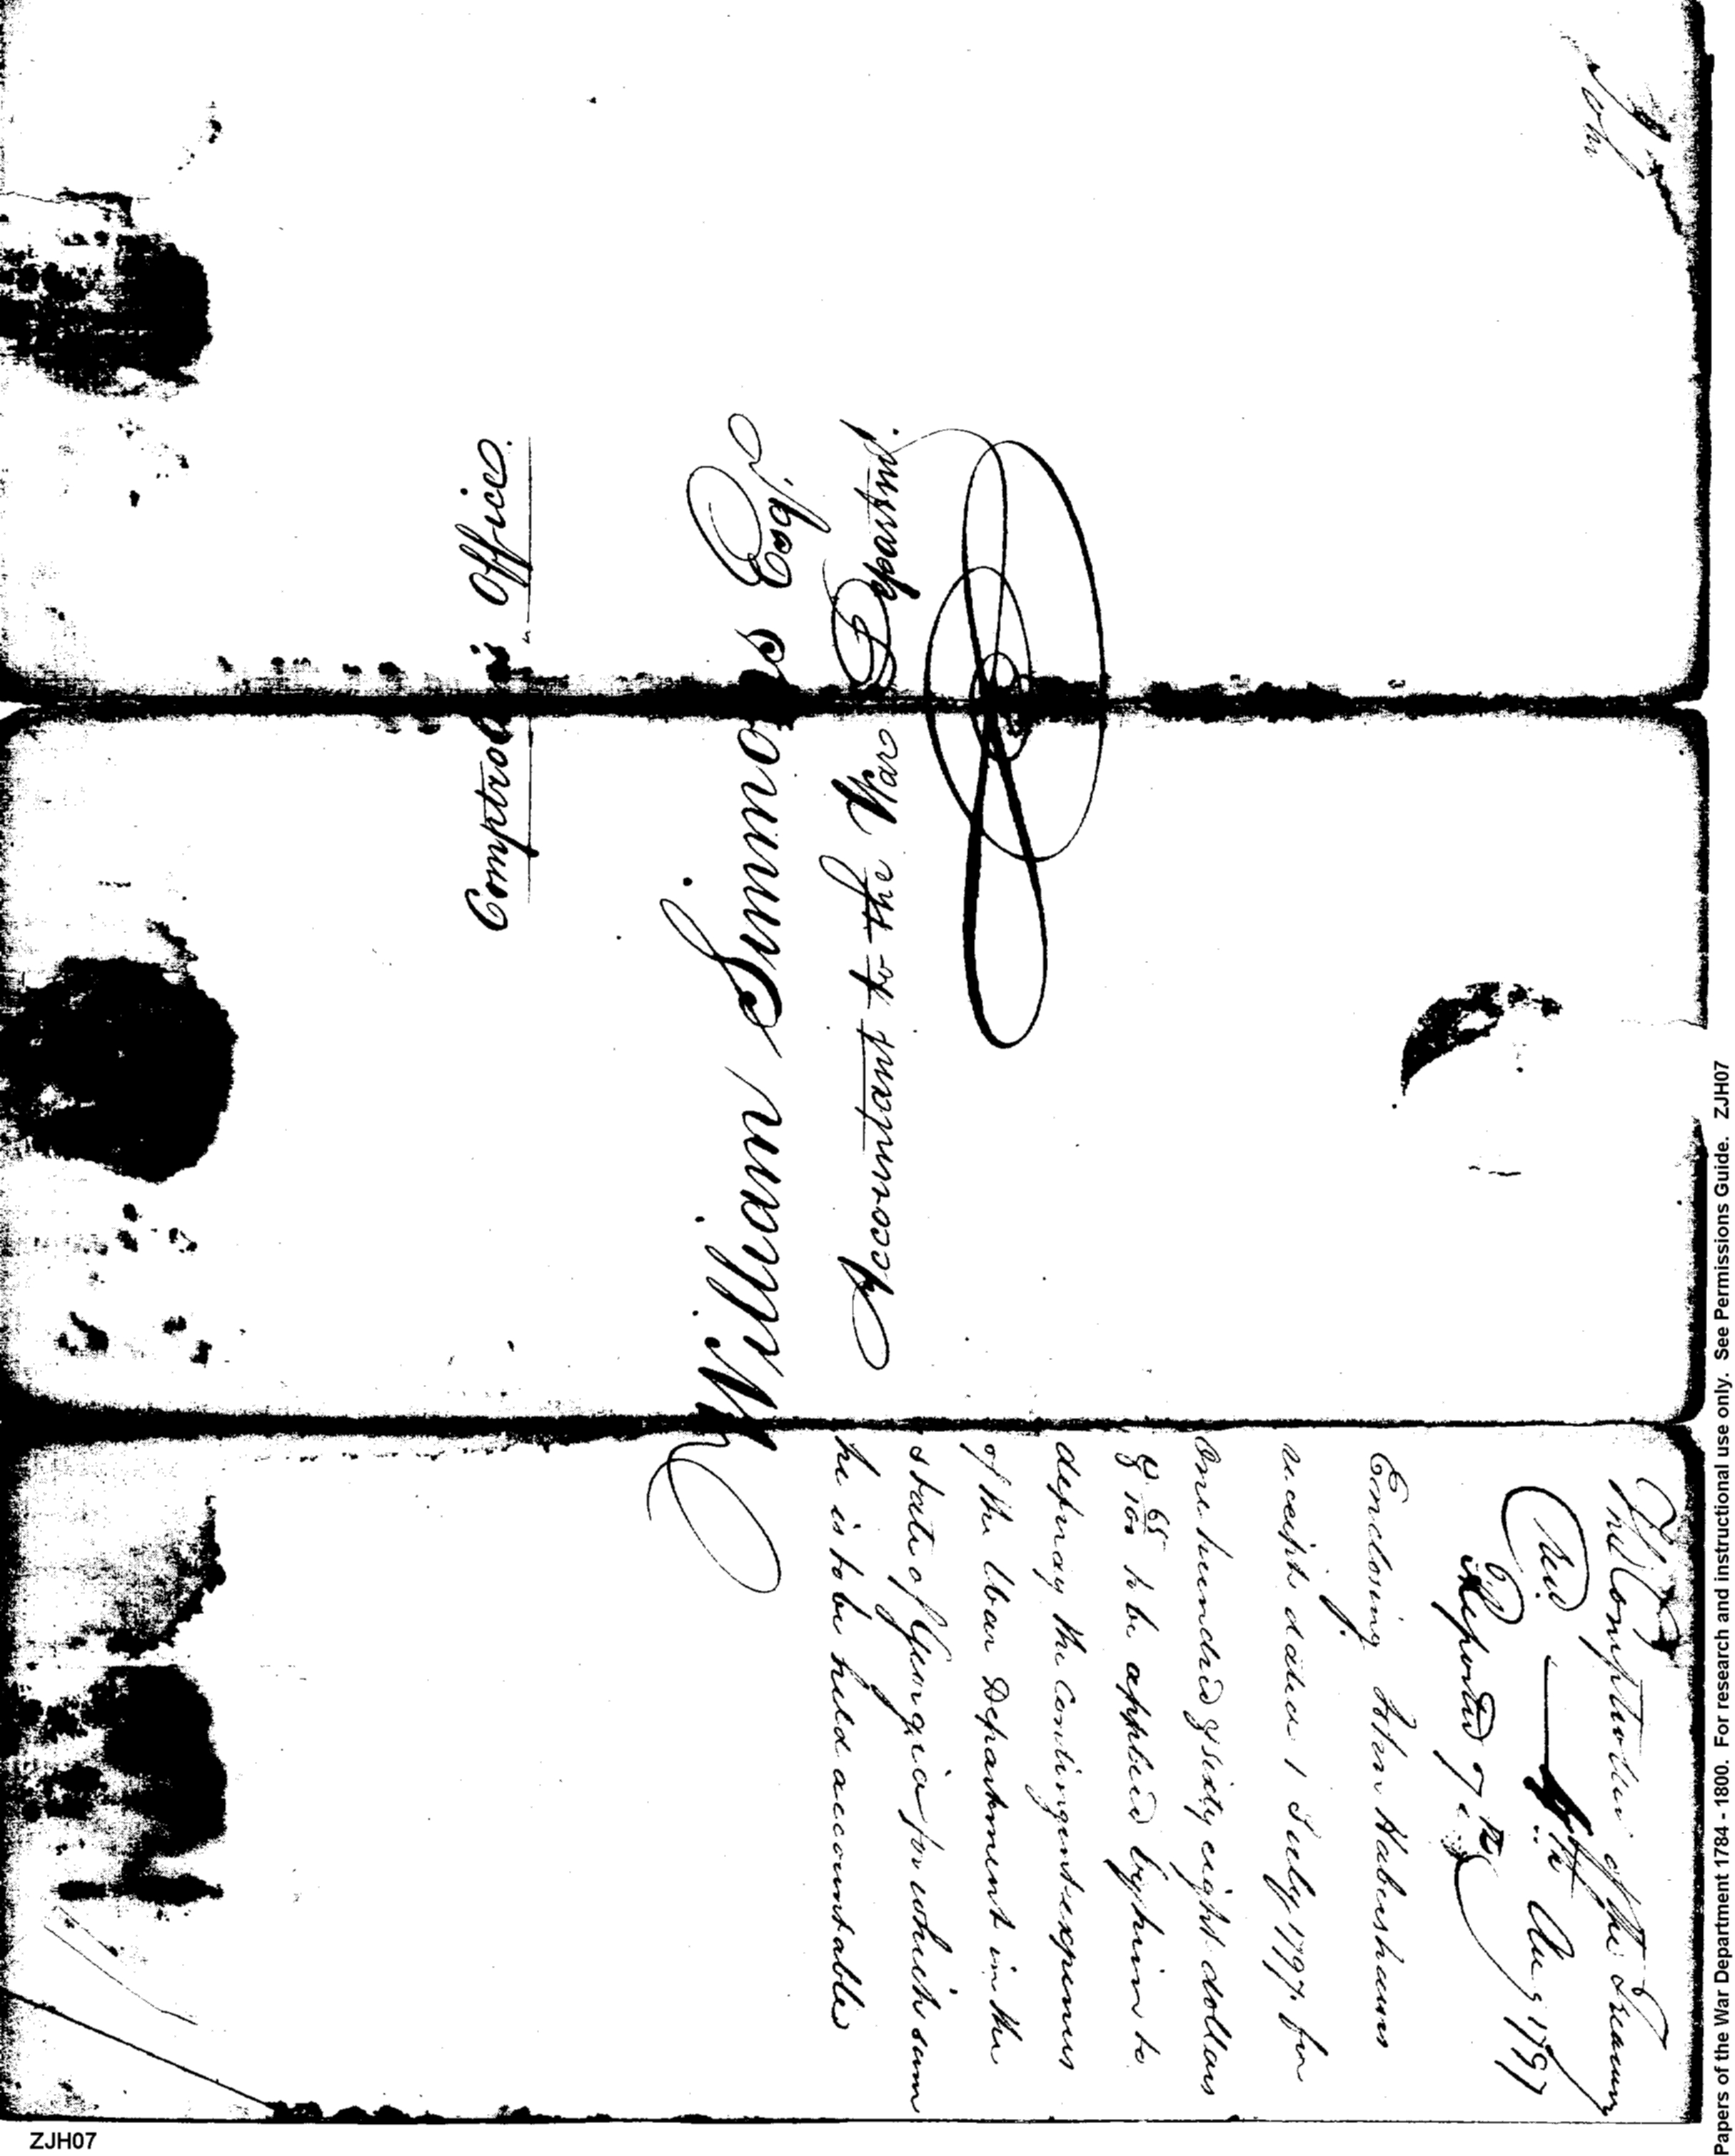 Comptroller's Office
William Simmons Esqr.
Accountant to the War Departmt.
The Comptroller of the Treasury
Recd. 4th Aug 1797
Reported 7th
Enclosing John Habershams
receipt dated 1 July 1797 for
One hundred & sixty eight dollars
& 65/100 to be applied by him to
defray the Contingent expenses
of the War Department in the
state of Georgia for which sum
he is to be held accountable
John
ZJH07
Papers of the War Department 1784 - 1800. For research and instructional use only. See Permissions Guide. ZJH07